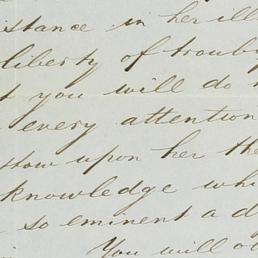 stance in her ill
liberty of troub
t you will do
every attention
stow upon her the
knowledge whi
so eminent a d
You will o